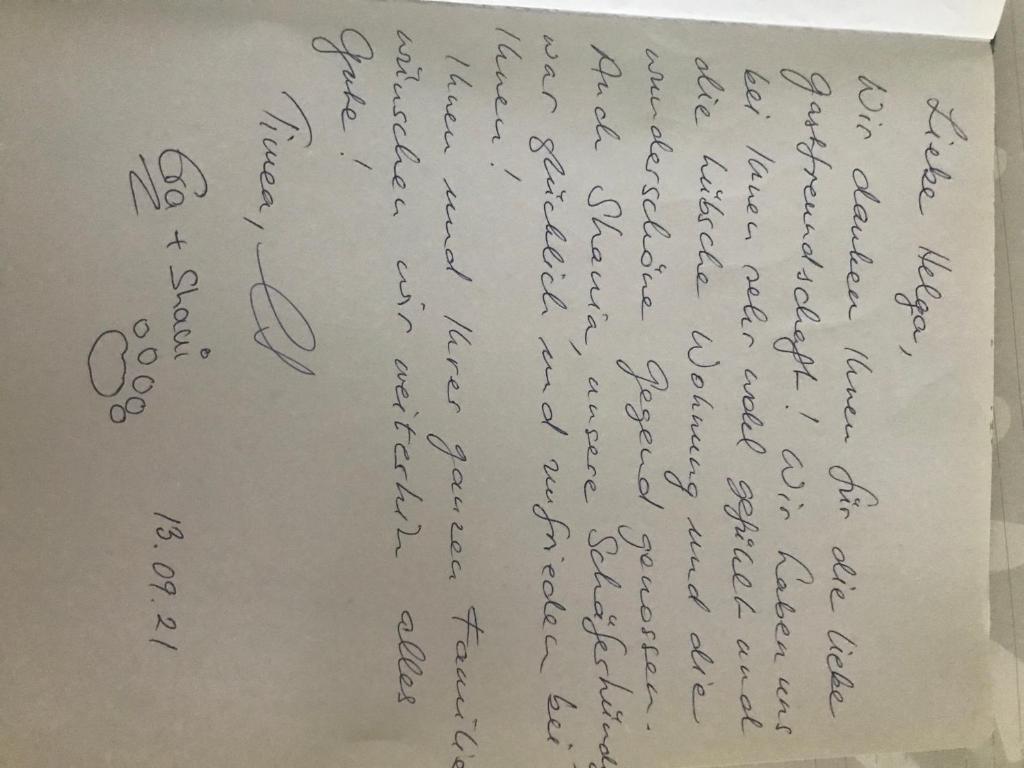 Liebe Helga,
Wir danken Ihnen für die liebe
Gastfreundschaft! Wir haben uns
bei Ihnen sehr wohl gefühlt und
die hübsche Wohnung und die
wunderschöne Gegend genossen.
Auch Shania, unsere Schäferhündi
war glücklich und zufrieden bei
Ihnen!
Ihnen und Ihrer ganzen Familie
wünschen wir weiterhin alles
Gute!
Timea,
+ Shani
13.09.21